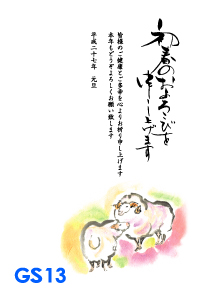 初春のおよろこびを
申し上げます
皆様のご健康とご多幸を心よりお祈り申し上げます
本年もどうぞよろしくお願い致します
平成二十七年　元旦
GS13